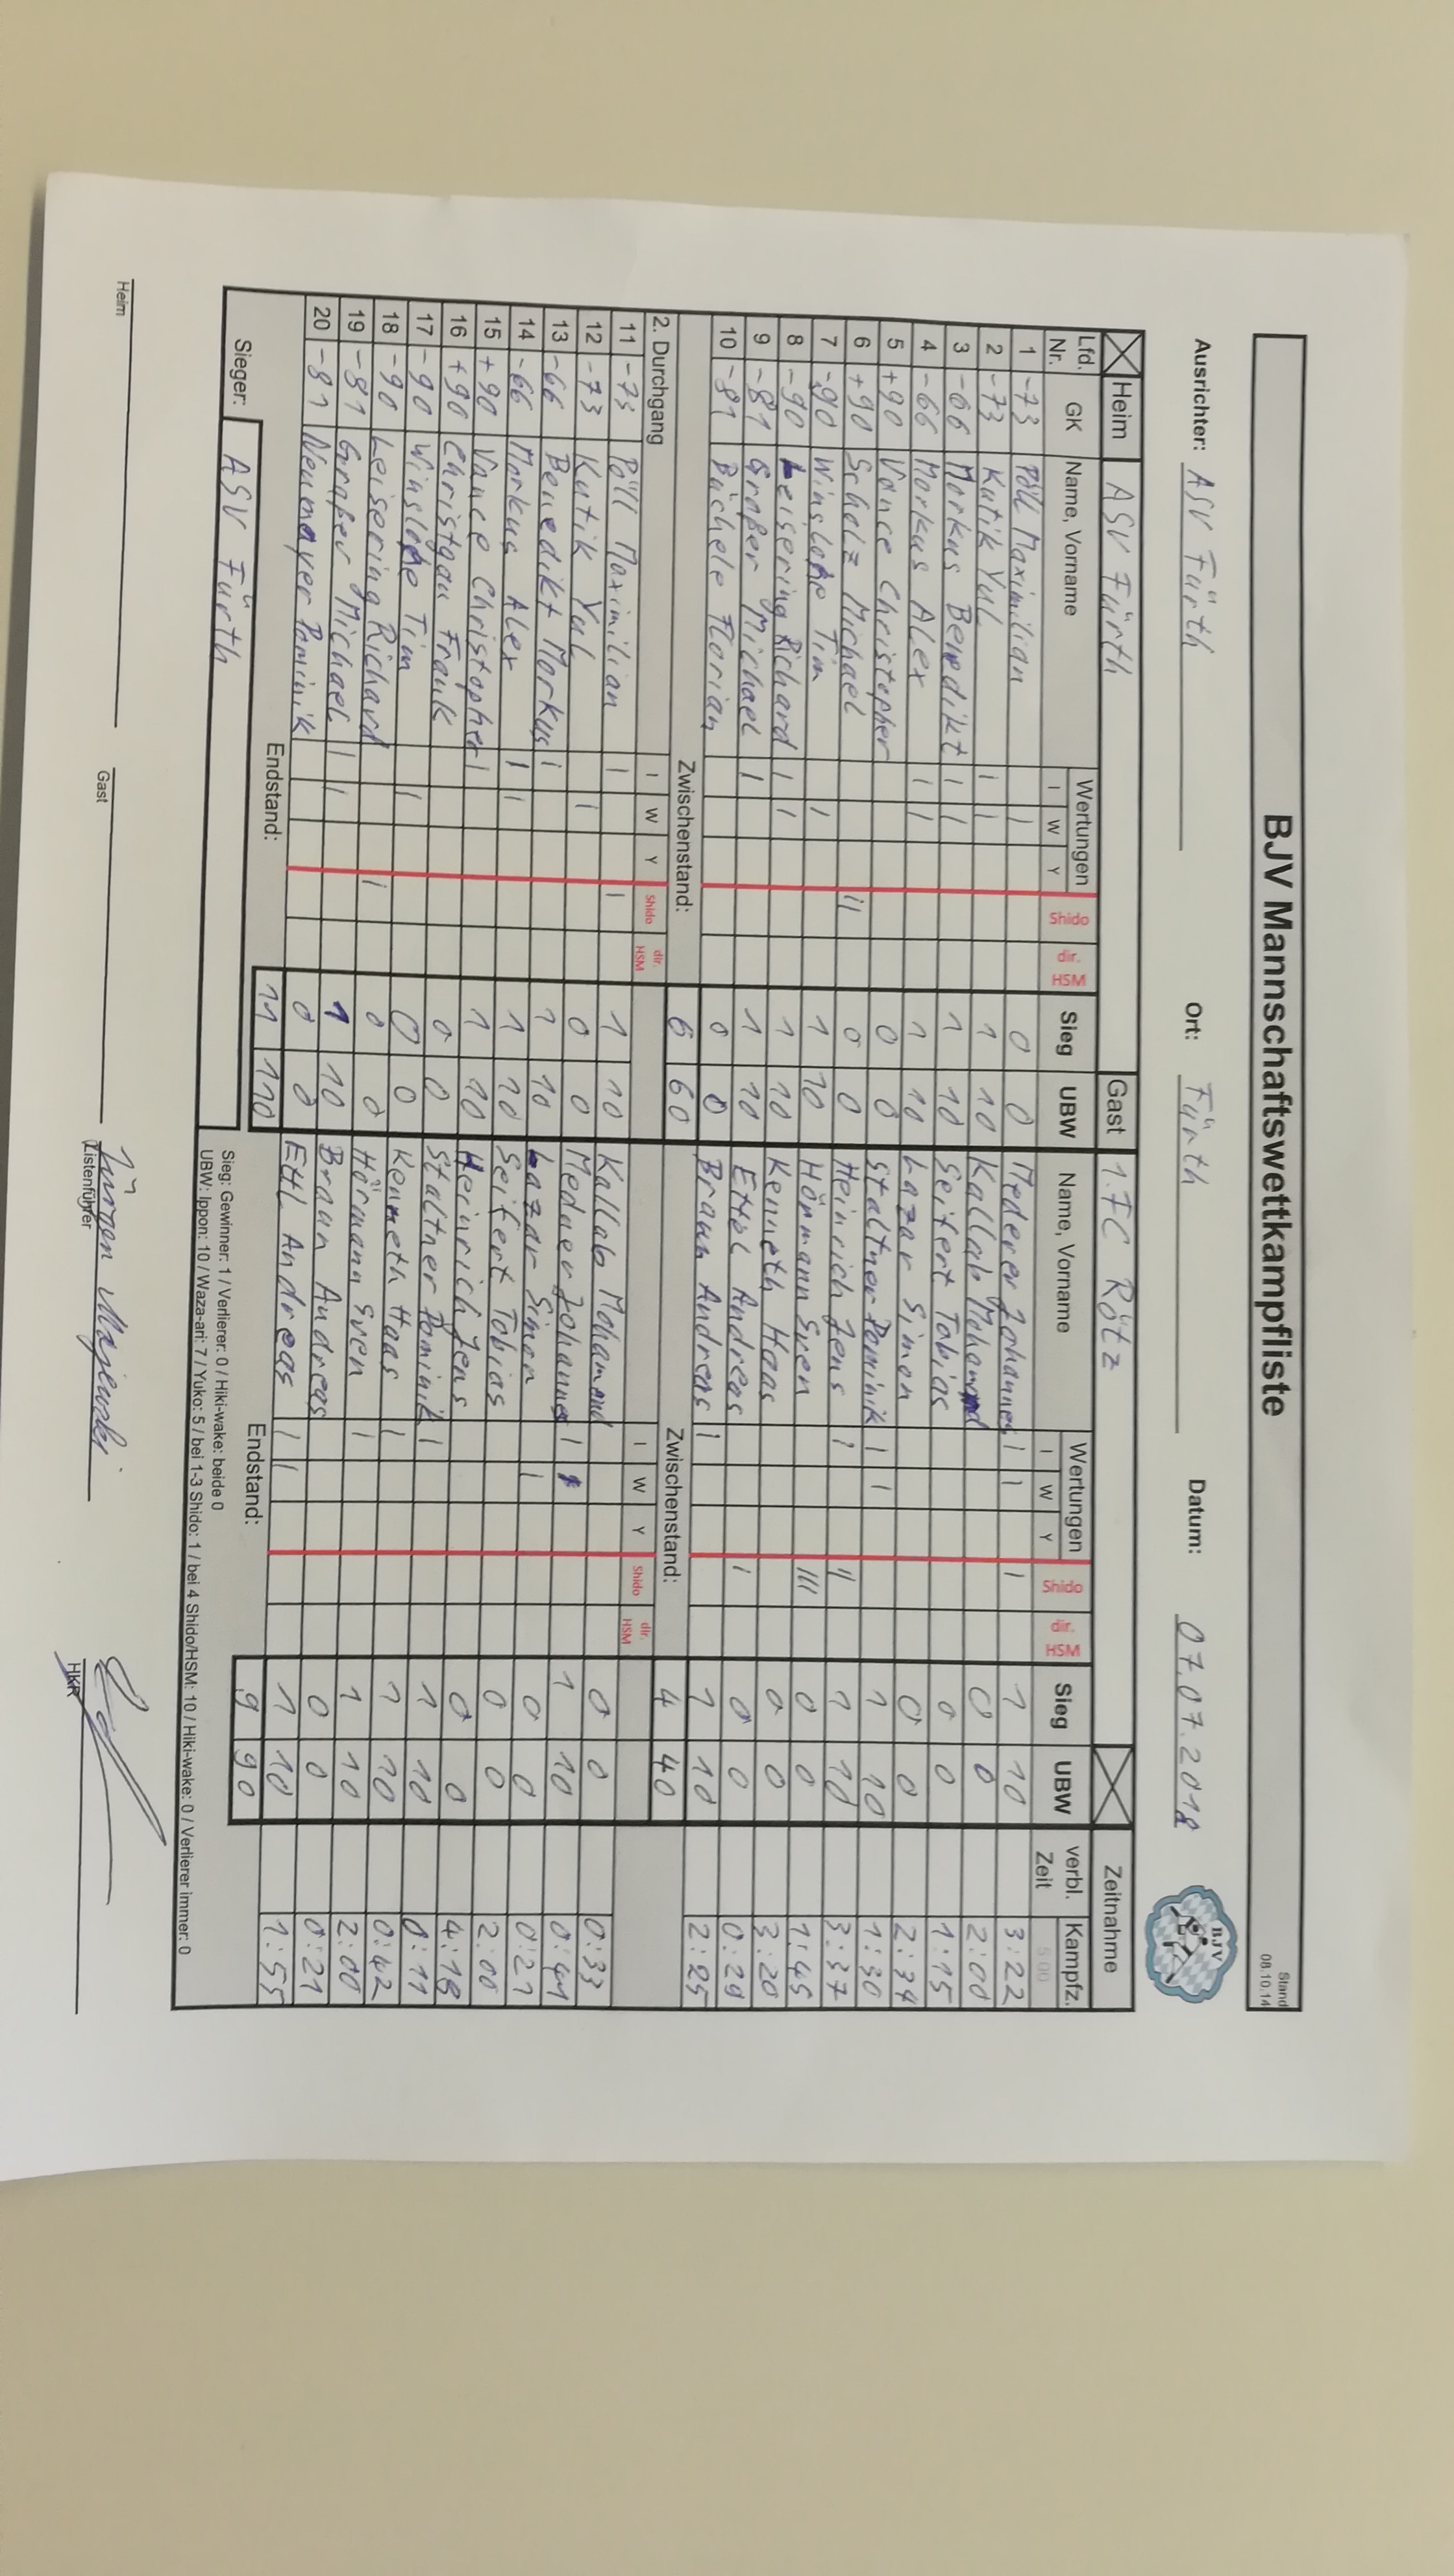 BJV Mannschaftswettkampfliste
Stand 08.10.14
Ausrichter: ASV Fürth Ort: Fürth Datum: 07.07.2018
BJV
Heim ASV Fürth Gast 1.FC Rötz Zeitnahme
Lfd. Nr. GK Name, Vorname Wertungen I W Y Shido dir. HSM Sieg UBW Name, Vorname Wertungen I W Y Shido dir. HSM Sieg UBW verbl. Zeit Kampfz. 5:00
1 -73 Pöll Maximilian | 0 0 Mederer Johannes | | | 1 10 3:22
2 -73 Kutik Yul | | 1 10 Kallab Mohamad 0 0 2:00
3 -66 Morkus Benedikt | | 1 10 Seifert Tobias 0 0 1:15
4 -66 Morkus Alex | | 1 10 Lazar Simon 0 0 2:34
5 +90 Vance Christopher 0 0 Staltner Dominik | | 1 10 1:30
6 +90 Scholz Michael || 0 0 Heinrich Jens | || 1 10 3:37
7 -90 Tim | 1 10 Hörmann Sven ||| 0 0 1:45
8 -90 Leisering Richard | | 1 10 Kenneth Haas 0 0 3:20
9 -81 Graßer Michael | 1 10 Ettl Andreas | 0 0 0:29
10 -81 Büchele Florian 0 0 Braun Andreas | 1 10 2:25
Zwischenstand: 6 60 Zwischenstand: 4 40
2. Durchgang I W Y Shido dir. HSM I W Y Shido dir. HSM
11 -73 Pöll Maximilian | | 1 10 Kallab Mohamad 0 0 0:33
12 -73 Kutik Yul | 0 0 Johannes | 1 10 0:41
13 -66 Benedikt Morkus | 1 10 Lazar Simon | 0 0 0:21
14 -66 Morkus Alex | | 1 10 Seifert Tobias 0 0 2:00
15 +90 Vance Christopher | 1 10 Heinrich Jens 0 0 4:18
16 +90 Christgau Frank 0 0 Staltner Dominik | 1 10 0:11
17 -90 Tim | 0 0 Kenneth Haas | 1 10 0:42
18 -90 Leisering Richard | 0 0 Hörmann Sven | 1 10 2:00
19 -81 Graßer Michael | | 1 10 Braun Andreas 0 0 0:21
20 -81 Neumayer Dominik 0 0 Ettl Andreas | | 1 10 1:55
Endstand: 11 110 Endstand: 9 90
Sieger: ASV Fürth
Sieg: Gewinner: 1 / Verlierer: 0 / Hiki-wake: beide 0
UBW: Ippon: 10 / Waza-ari: 7 / Yuko: 5 / bei 1-3 Shido: 1 / bei 4 Shido/HSM: 10 / Hiki-wake: 0 / Verlierer immer: 0
Jürgen
Heim Gast Listenführer HKR